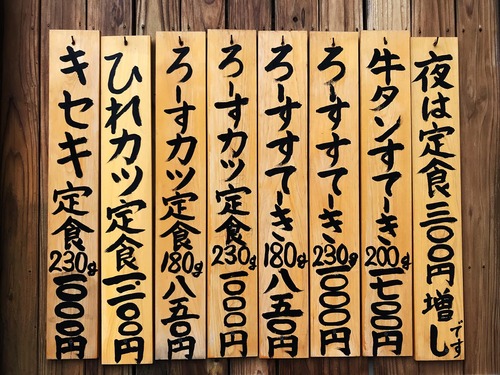 夜は定食三〇〇円増しです
牛タンすてーき200g一七〇〇円
ろーすすてーき230g一〇〇〇円
ろーすすてーき180g八五〇円
ろーすカツ定食230g一〇〇〇円
ろーすカツ定食180g八五〇円
ひれカツ定食一二〇〇円
キセキ定食230g一〇〇〇円